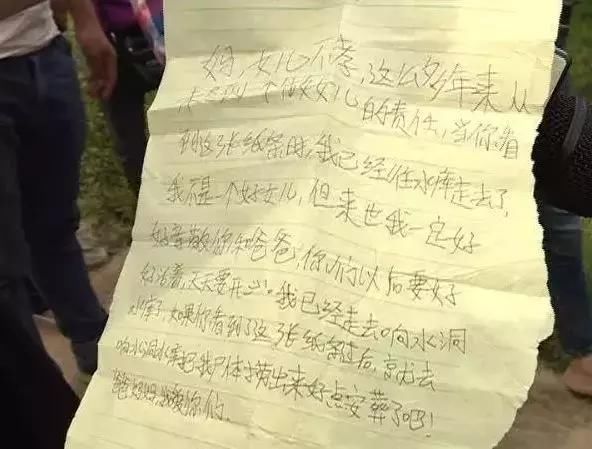 妈，女儿不孝，这么多年来从
未尽到一个做女儿的责任，当你看
到这张纸条时，我已经往水库走去了，
我不是一个好女儿，但来世我一定好
好孝敬你和爸爸，你们以后要好
好活着，天天要开心。我已经走去响水洞
水库了，如果你看到了这张纸条后，就去
响水洞水库把我尸体捞出来好点安葬了吧！
爸妈妈，我爱你们。